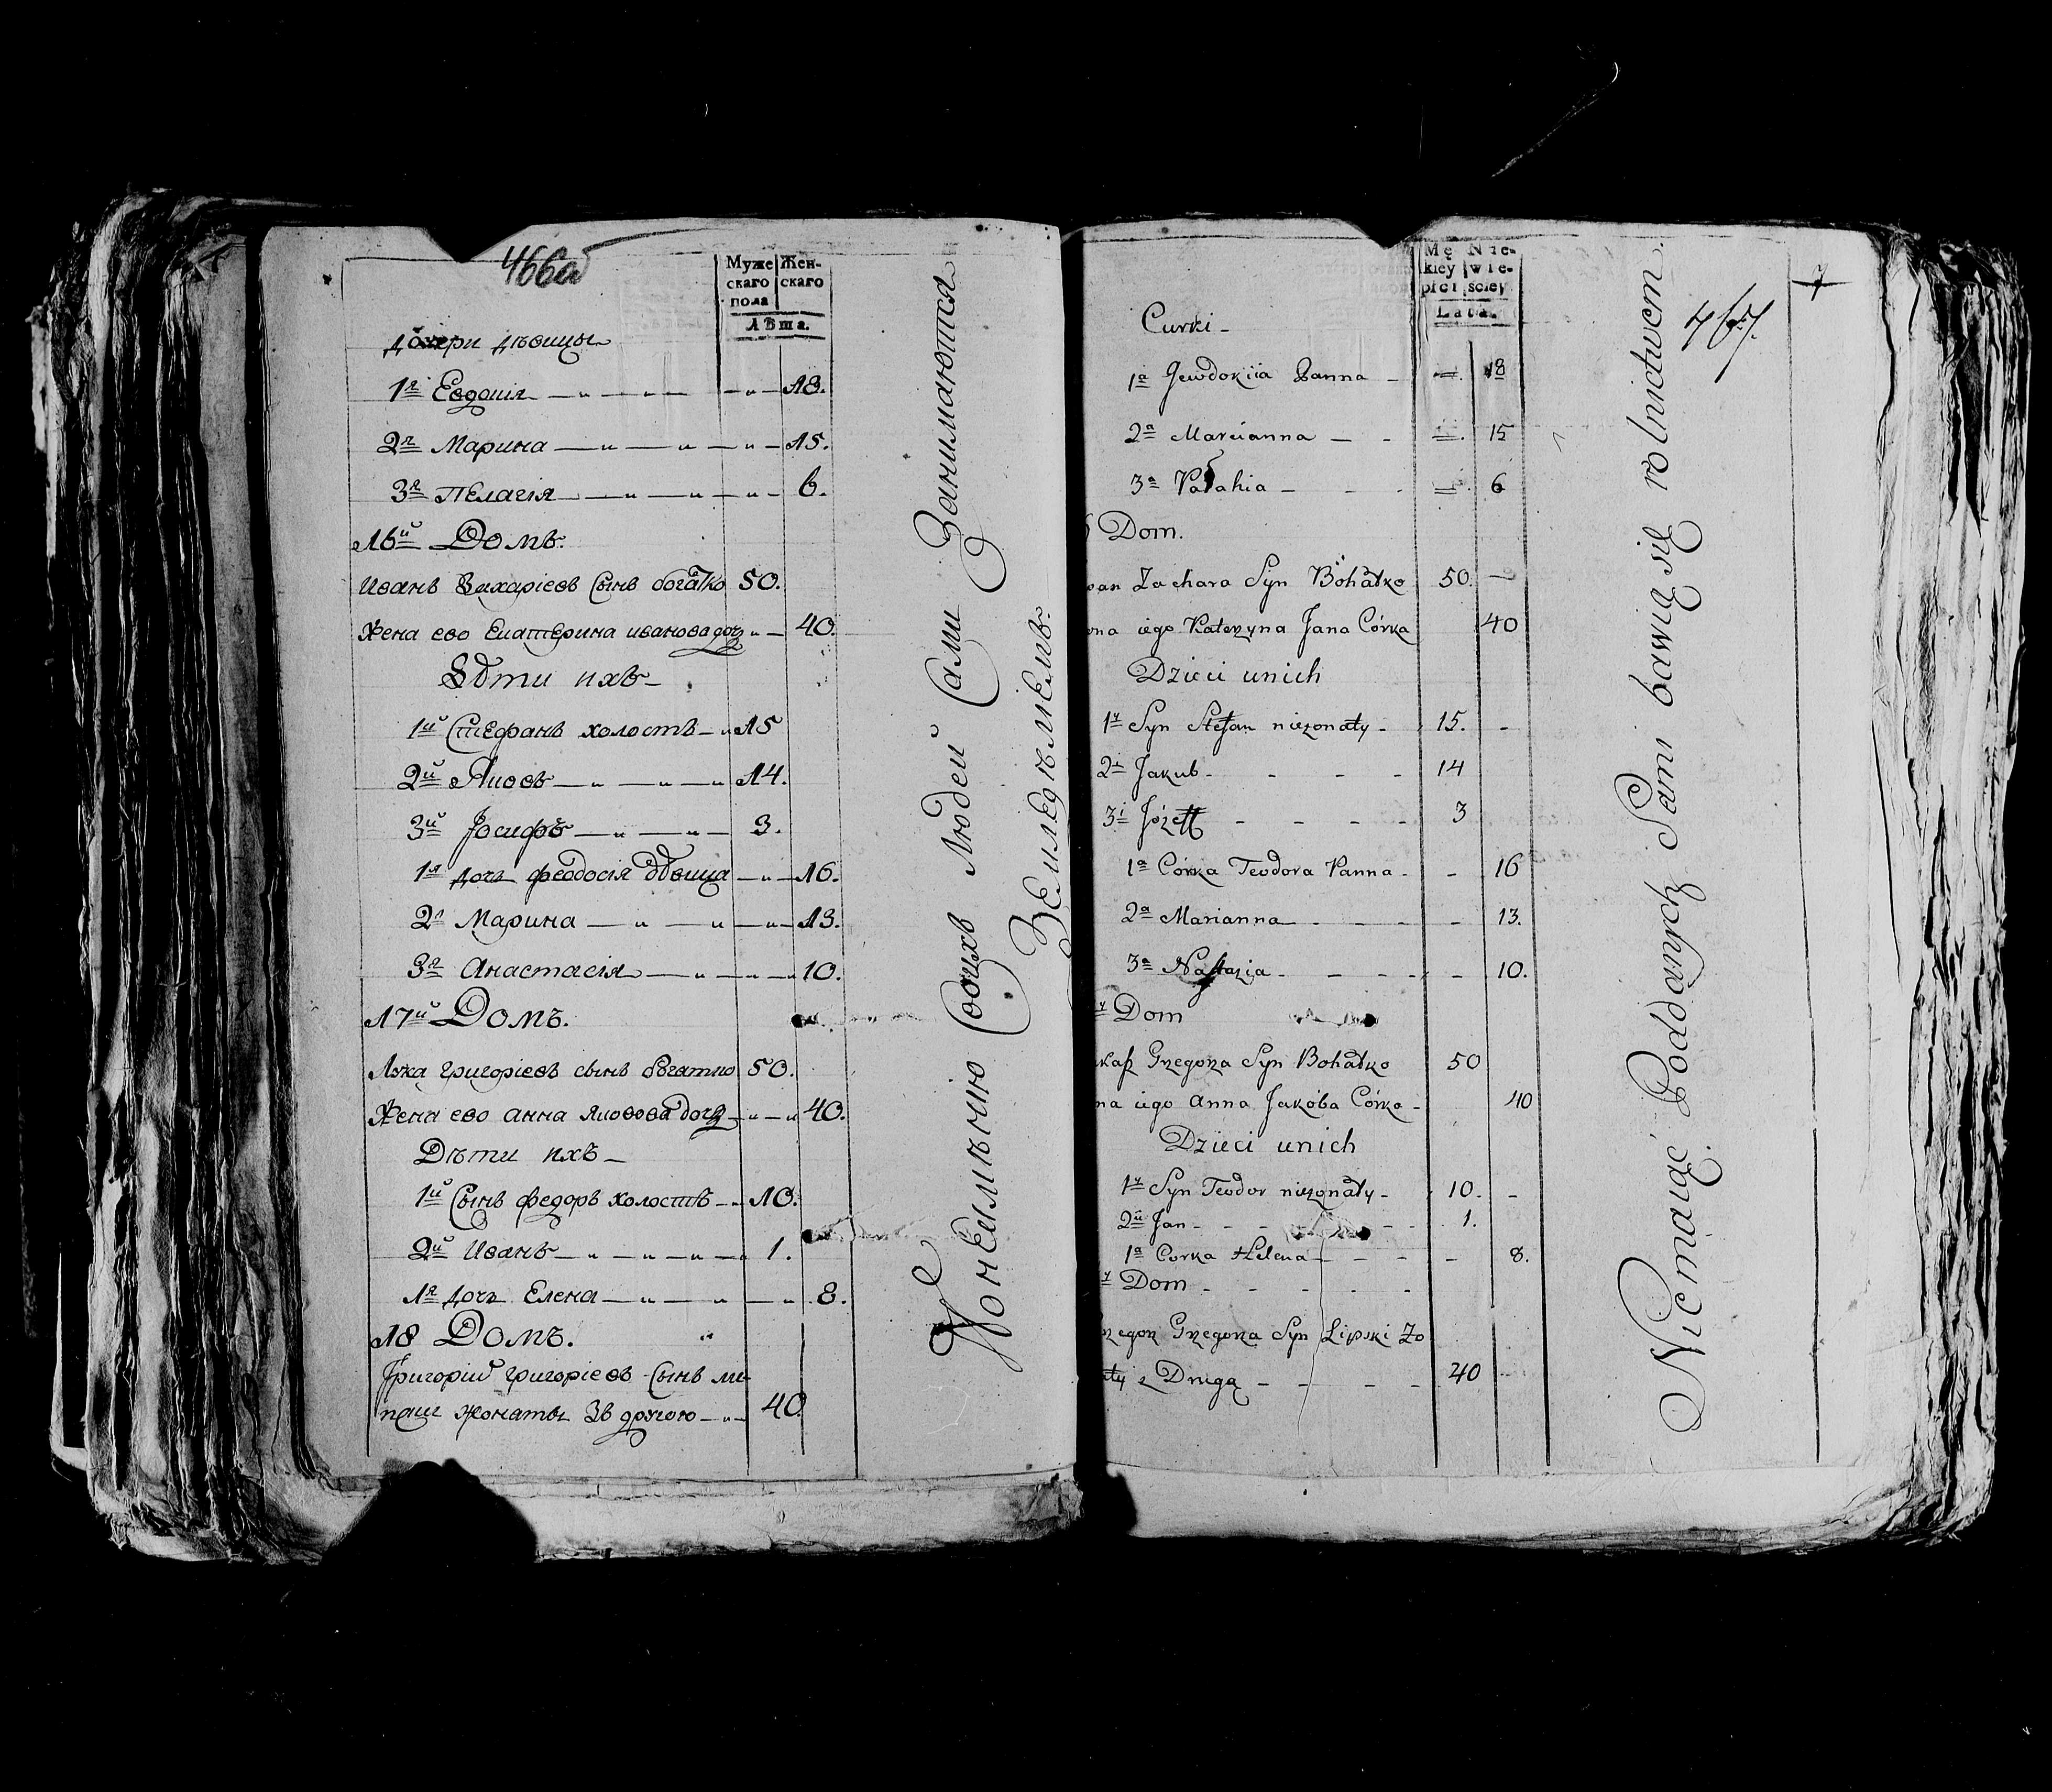 466а
Муже Жен-
скаго скаго
пола
Лѣта.
дочери дѣвицы
1я Евдокія — „ — — „ — 18.
2я Марина — „ — „ — „ — 15.
3я Пелагія — „ — „ — „ — 6.
16й Домъ.
Иванъ Захаріевъ Сынъ богатко 50.
Жена ево Екатерина иванова доч „ — 40.
Дѣти ихъ —
1й Стефанъ холостъ — „ 15
2й Яковъ — „ — „ — „ 14.
3й Іосифъ — „ — „ — 3.
1я дочь феодосія дѣвица — „ — 16.
2я Марина — „ — „ — „ — 13.
3я Анастасія — „ — „ — „ 10.
17й Домъ.
Лука григоріевъ сынъ богатко 50.
Жена ево анна яковова дочь — „ — „ 40.
Дѣти ихъ —
1й Сынъ федоръ холостъ — „ 10.
2й Иванъ — „ — „ — „ — „ 1.
1я дочь Елена — „ — „ — „ 8.
18 Домъ.
Григорій григоріевъ Сынъ ли-
пски жонаты Зъ другою — „ — 40.
Нонеимѣнію Своихъ Людей Сами Занимаются
Земледѣліемъ.
Mę Nie-
kiey wie-
płci sciey
Lata.
467.
Curki —
1a Jewdokiia Panna — 18
2a Marcianna — — 15
3a Parahia — - - 6
Dom.
Zachara Syn Bohatko 50. —
iego Katerzyna Jana Córka 40
Dzieci unich
1y Syn Stefan niezonaty - 15. -
2i Jakub - - - - - 14
3i Józeff - - - - 3
1a Córka Teodora Panna - - 16
2a Marianna - - - - 13.
3a Nastazia - - - - - 10.
Dom
Grzegorza Syn Bohatko 50
iego Anna Jakóba Córka - 40
Dzieci unich
1y Syn Teodor niezonaty - 10. -
2ii Jan - - - - - - 1.
1a Corka Helena - - - - 8.
Dom - - - - -
Grzegorza Syn Lipski Żo
z Drugą - - - - 40
Niemaiąć Poddanych Sami bawią się rolnictwem.